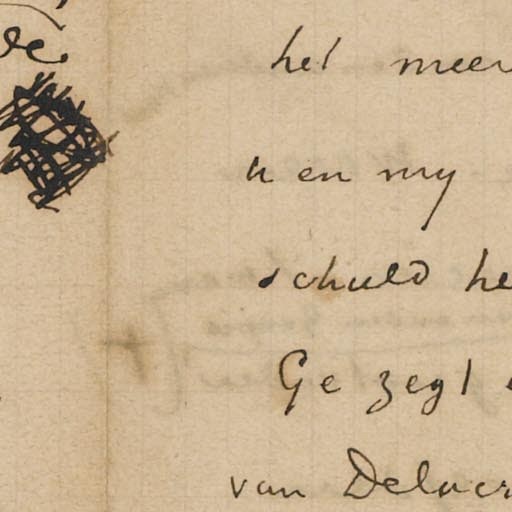 het meer
u en my
schuld he
Ge zegt
van Delacr